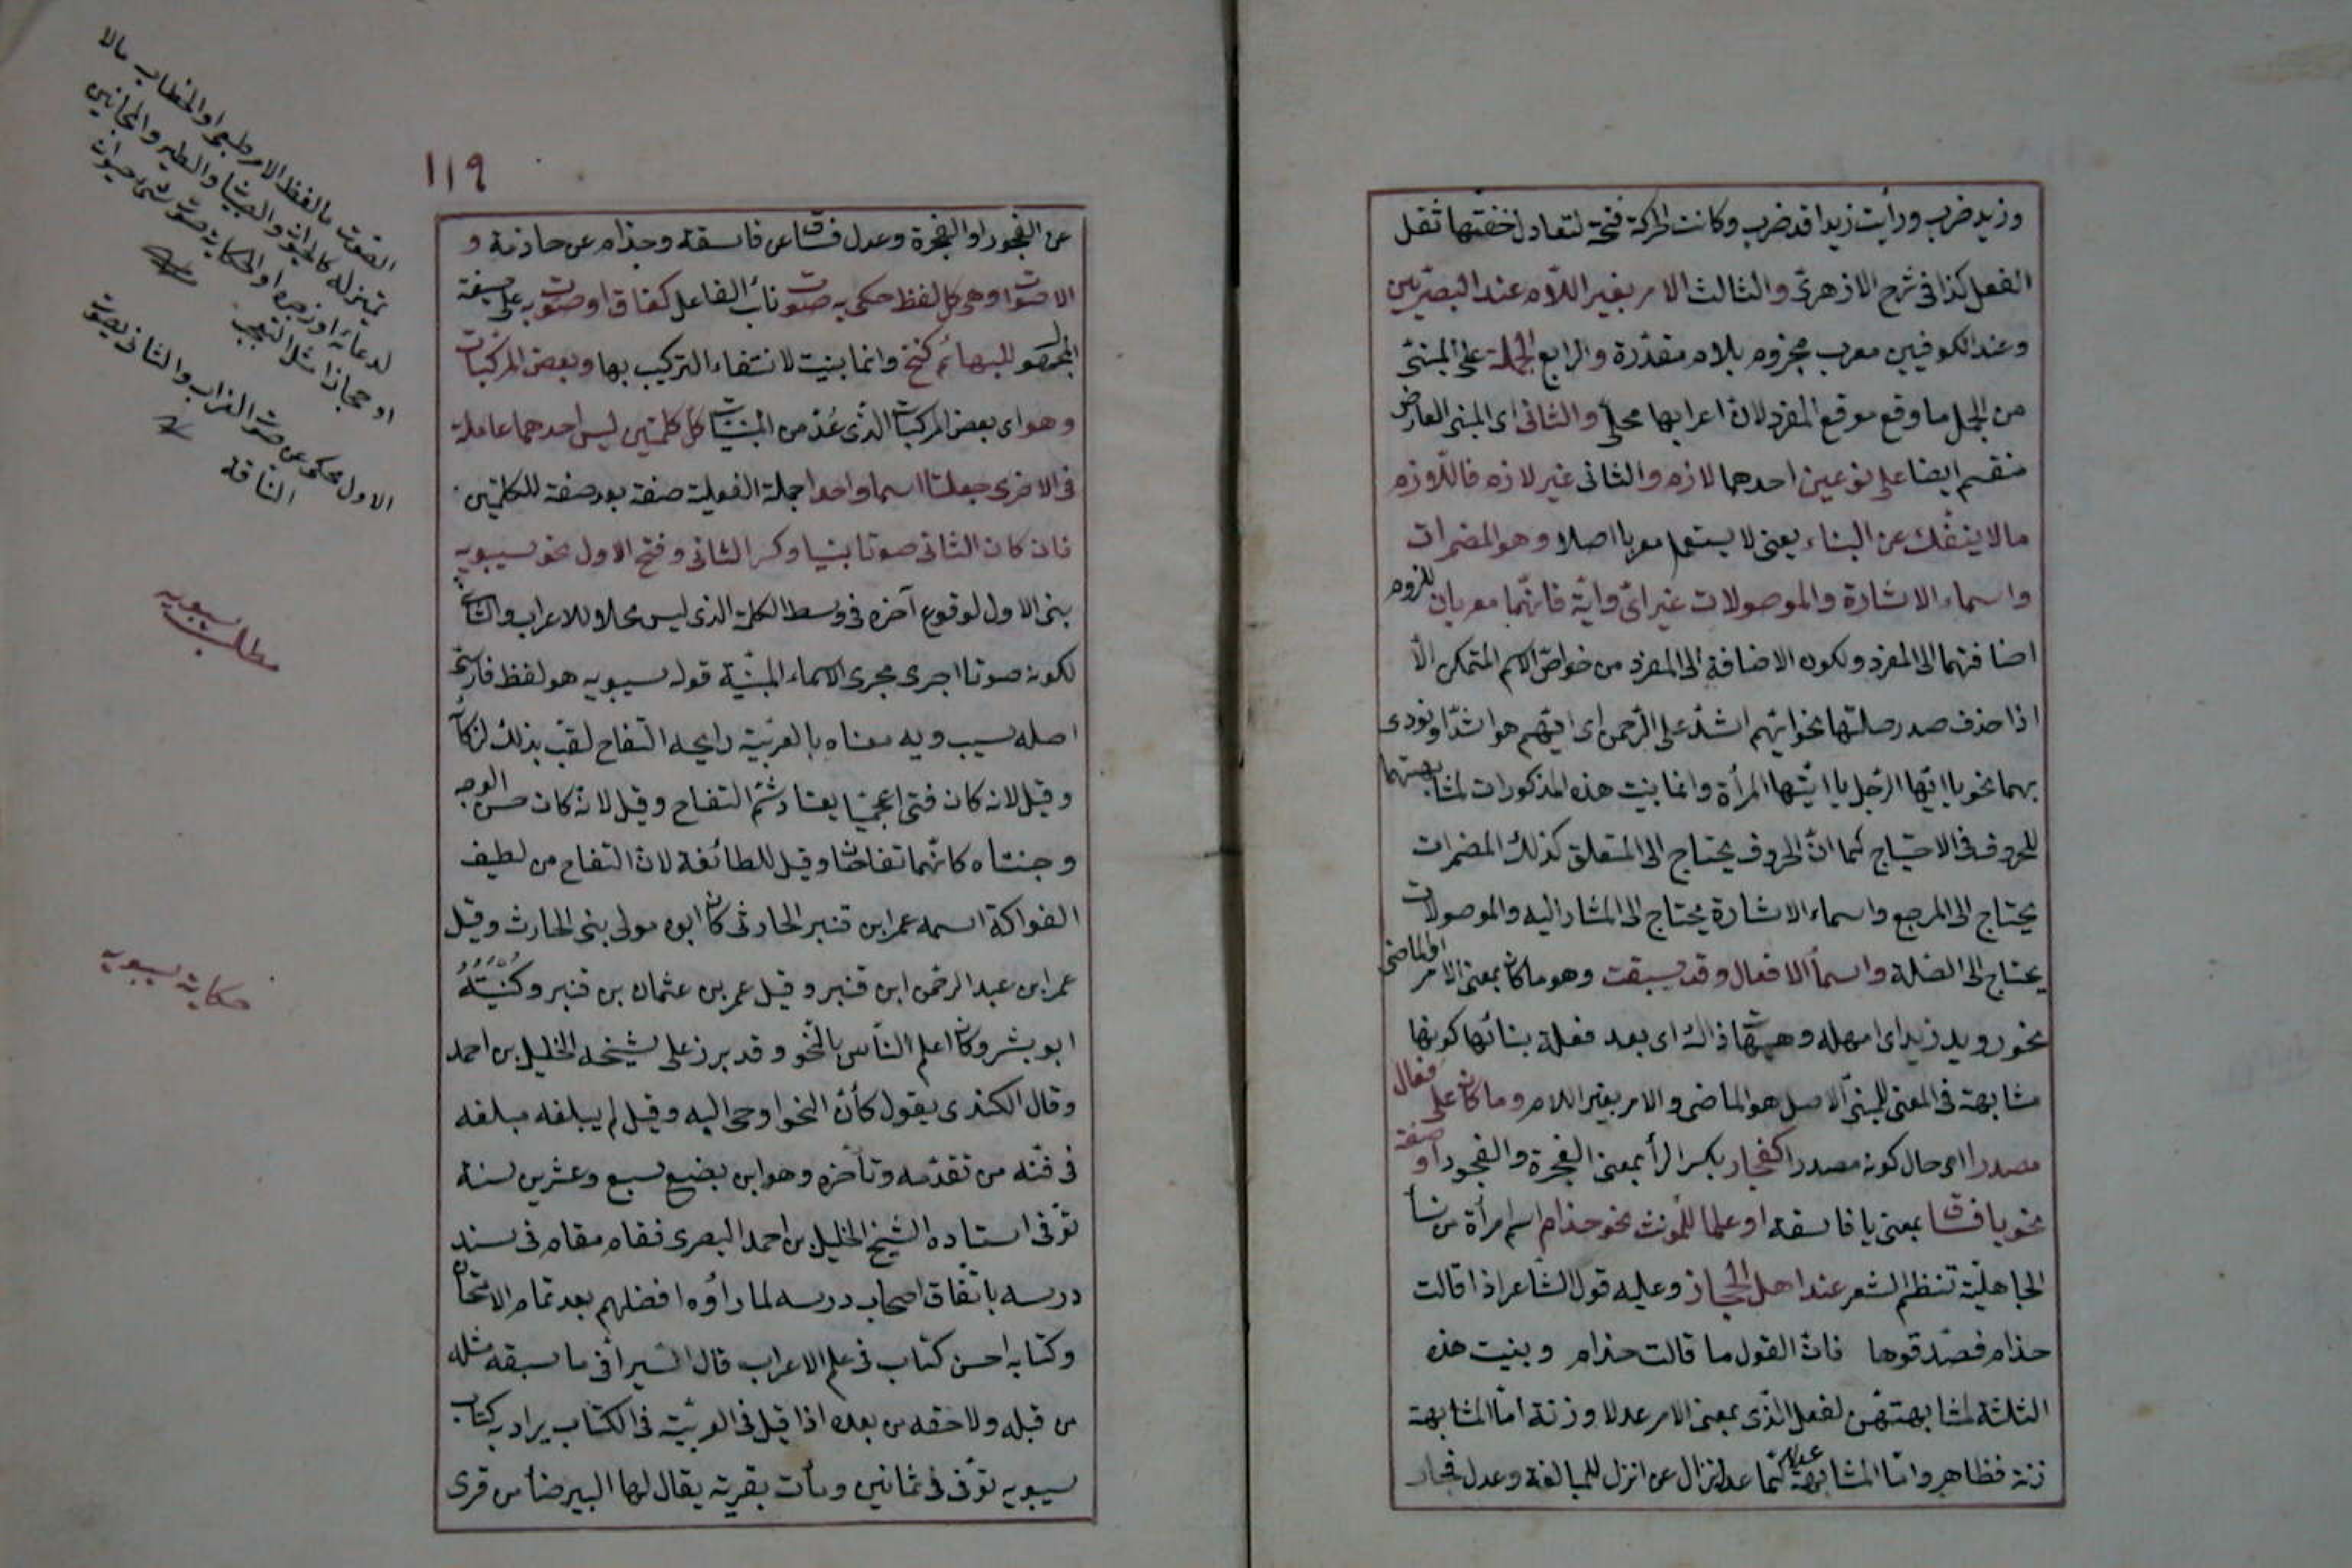 وزيد ضرب ورأيت زيدا قد ضرب وكانت الحركة فتحة لتعادل خفتها ثقل
الفعل كذا فى شرح الازهرى والثالث الامر بغير اللام عند البصريين
وعند الكوفيين معرب مجزوم بلام مقدرة والرابع الجملة على المبنى
من الجمل ما وقع موقع المفرد لان اعرابها محلى والثانى اى المبنى العارض
منقسم ايضا على نوعين احدهما لازم والثانى غير لازم فاللازم
ما لا ينفك عن البناء يعنى لا يستعمل معربا اصلا وهو المضمرات
واسماء الاشارة والموصولات غير اىّ وايّة فانهما معربان للزوم
اضافتهما الى المفرد ولكون الاضافة الى المفرد من خواص الاسم المتمكن الّا
اذا حذف صدر صلتها نحو ايهم اشد على الرحمن اى ايهم هو اشد او نودى
بهما نحو يا ايها الرجل يا ايتها المرأة وانما بنيت هذه المذكورات لمشابهتها
للحروف فى الاحتياج كما انّ الحروف يحتاج الى المتعلق كذلك المضمرات
يحتاج الى المرجع واسماء الاشارة يحتاج الى المشار اليه والموصولات
يحتاج الى الصلة واسماء الافعال وقد سبقت وهو ما كان بمعنى الامر او الماضى
نحو رويد زيدا اى امهله وهيهات ذاك اى بعد فعلة بنائها كونها
مشابهة فى المعنى للمبنى الاصل هو الماضى والامر بغير اللام وما كان على فعال
مصدرا اى حال كونه مصدرا كفجار بكسر الرأ بمعنى الفجرة والفجور او صفة
نحو يا فساق بمعنى يا فاسقة او علما للمؤنث نحو حذام اسم امرأة من نسأ
الجاهلية تنظم الشعر عند اهل الحجاز وعليه قول الشاعر اذا قالت
حذام فصدقوها فان القول ما قالت حذام وبنيت هذه
الثلثة لمشابهتهن لفعل الذى بمعنى الامر عدلا وزنة امّا المشابهة
زنة فظاهر وامّا المشابهة عدلا كما عدل نزال عن انزل للمبالغة وعدل فجار
١١٩
عن الفجور او الفجرة وعدل فساق عن فاسقة وحذام عن حاذمة و
الاصوات وهى كل لفظ حكى به صوت نائب الفاعل كغاق او صوت به على صيغة
المجهول للبهائم كنخ وانما بنيت لانتفاء التركيب بها وبعض المركبات
وهو اى بعض المركبات الذى عدّ من المبنيات كل كلمتين ليس احدهما عاملة
فى الاخرى جعلتا اسما واحدا جملة الفعلية صفة بعد صفة للكلمتين
فان كان الثانى صوتا بنيا وكسر الثانى وفتح الاول نحو سيبويه
بنى الاول لوقوع آخره فى وسط الكلمة الذى ليس محلا للاعراب والثانى
لكونه صوتا اجرى مجرى الاسماء المبنية قوله سيبويه هو لفظ فارسى
اصله سيب ويه معناه بالعربية رايحه التفاح لقب بذلك
وقيل لانه كان فتى اعجميا يعتاد شم التفاح وقيل لانه كان حسن الوجه
وجنتاه كانهما تفاحتا وقيل للطائفة لان التفاح من لطيف
الفواكة اسمه عمر ابن قنبر الحارثى كان ابوه مولى بنى الحارث وقيل
عمر ابن عبد الرحمن ابن قنبر وقيل عمر بن عثمان بن قنبر وكنيته
ابو بشر وكان اعلم الناس بالنحو وقد برز على شيخه الخليل بن احمد
وقال الكندى يقول كأن النحو اوحى اليه وقيل لم يبلغه مبلغه
فى فنه من تقدمه وتأخره وهو ابن بضع سبع وعشرين سنة
توفى استاده الشيخ الخليل بن احمد البصرى فقام مقام فى سند
درسه باتفاق اصحاب درسه لما رأوه افضلهم بعد تمام الامتحان
وكتابه احسن كتاب فى علم الاعراب قال السيرافى ما سبقه مثله
من قبله ولا حقه من بعده اذا قيل فى العربية فى الكتاب يراد به كتاب
سيبويه توفى فى ثمانين ومأت بقرية يقال لها البيرضأ من قرى
الصوت مالفظ الامر طبعا والخطاب مالا
بمنزله كالحيوان والصبيان والطير والمجانين
لدعائه او زجره او الحكاية صوت شئ حيوان
او جماذا مثل التعجب
الاول محكى عن صوت الغراب والثانى بصوت
الناقة
مطلب سيبويه
حكاية سيبويه